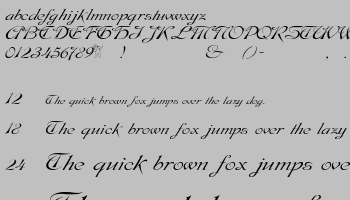 abcdefghijklmnopqrstuvwxyz
ABCDEFGHIJKLMNOPQRSTUVW
0123456789 ! & () - , .
12 The quick brown fox jumps over the lazy dog.
18 The quick brown fox jumps over the lazy
24 The quick brown fox jumps over